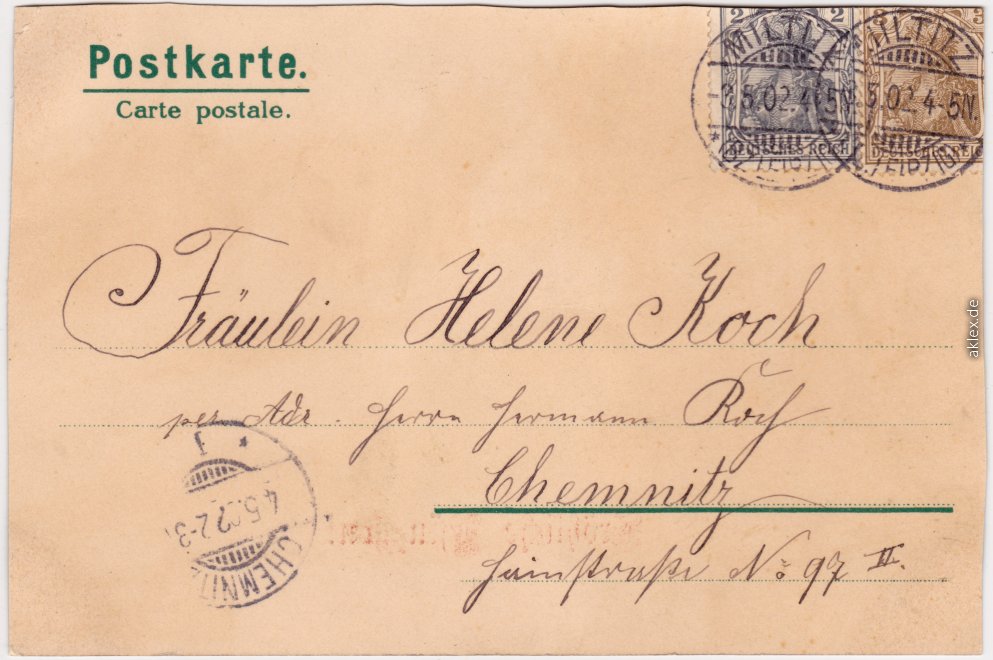 Postkarte.
Carte postale.
2 2
DEUTSCHES REICH
3 3
DEUTSCHES REICH
MILTITZ
5.02. 4-5N.
MILTITZ
5.02. 4-5N.
Fräulein Helene Koch
per Adr. Herrn Hermann Koch
Chemnitz
Hainstraße No 97 II.
CHEMNITZ
4.5.02 2-3
1
aklex.de